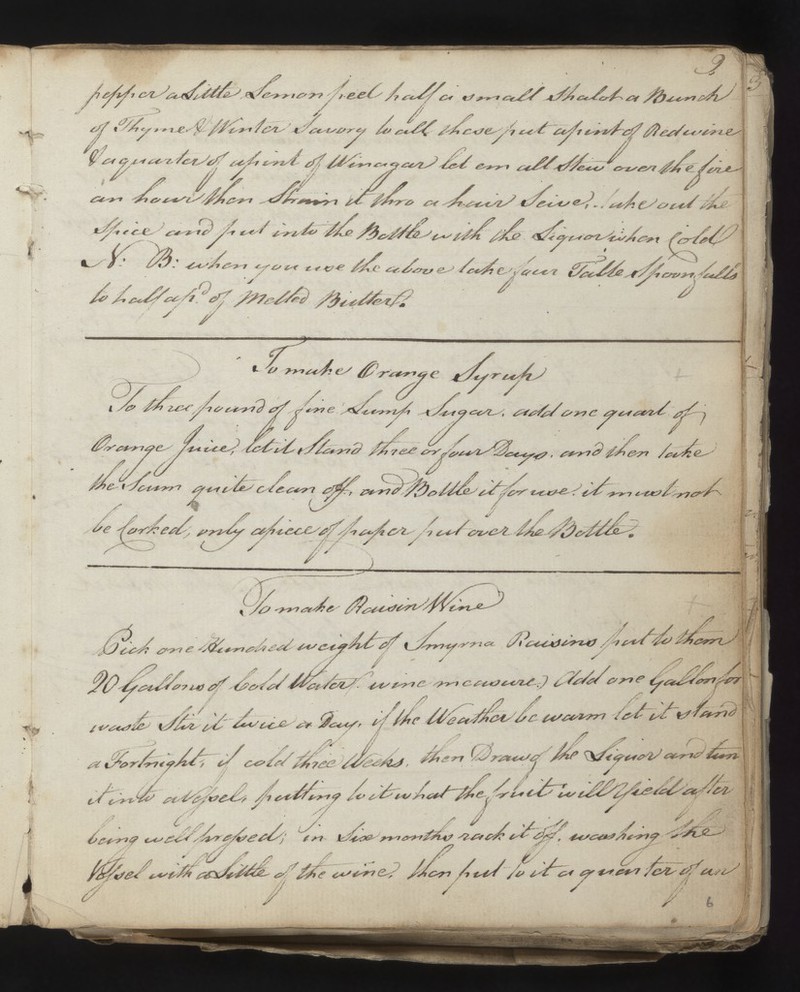 9
pepper a Little Lemon peel half a small Shalot a Bunch
of Thyme & Winter Savory to all these put a pint of Red wine
& a quarter of a pint of Winagar let em all Stew over the fire
an hour then Strain it thro a hair Seive, take out the
Spice and put into the Bottle with the Liquor when Cold
N: B: when you use the above take four Table Spoonfulls
to half a pt of Melted Butter.
To make Orange Syrup
To three pound of fine Lump Sugar. add one quart of
Orange Juice, let it Stand three or four Days. and then take
the Scum quite clean off, and Bottle it for use. it must not
be Corked; only a piece of paper put over the Bottle.
To make Raisin Wine
Pick one Hundred weight of Smyrna Raisins put to them
20 Gallons of Cold Water (wine measure) Add one Gallon for
waste Stir it twice a Day, if the Weather be warm let it stand
a Fortnight, if cold three Weeks. then Draw of the Liquor and tun
it into a Vessel, putting to it what the fruit will Yield after
being well pressed; in Six months rack it off. washing the
Vessel with a Little of the wine. then put to it a quarter of an
6